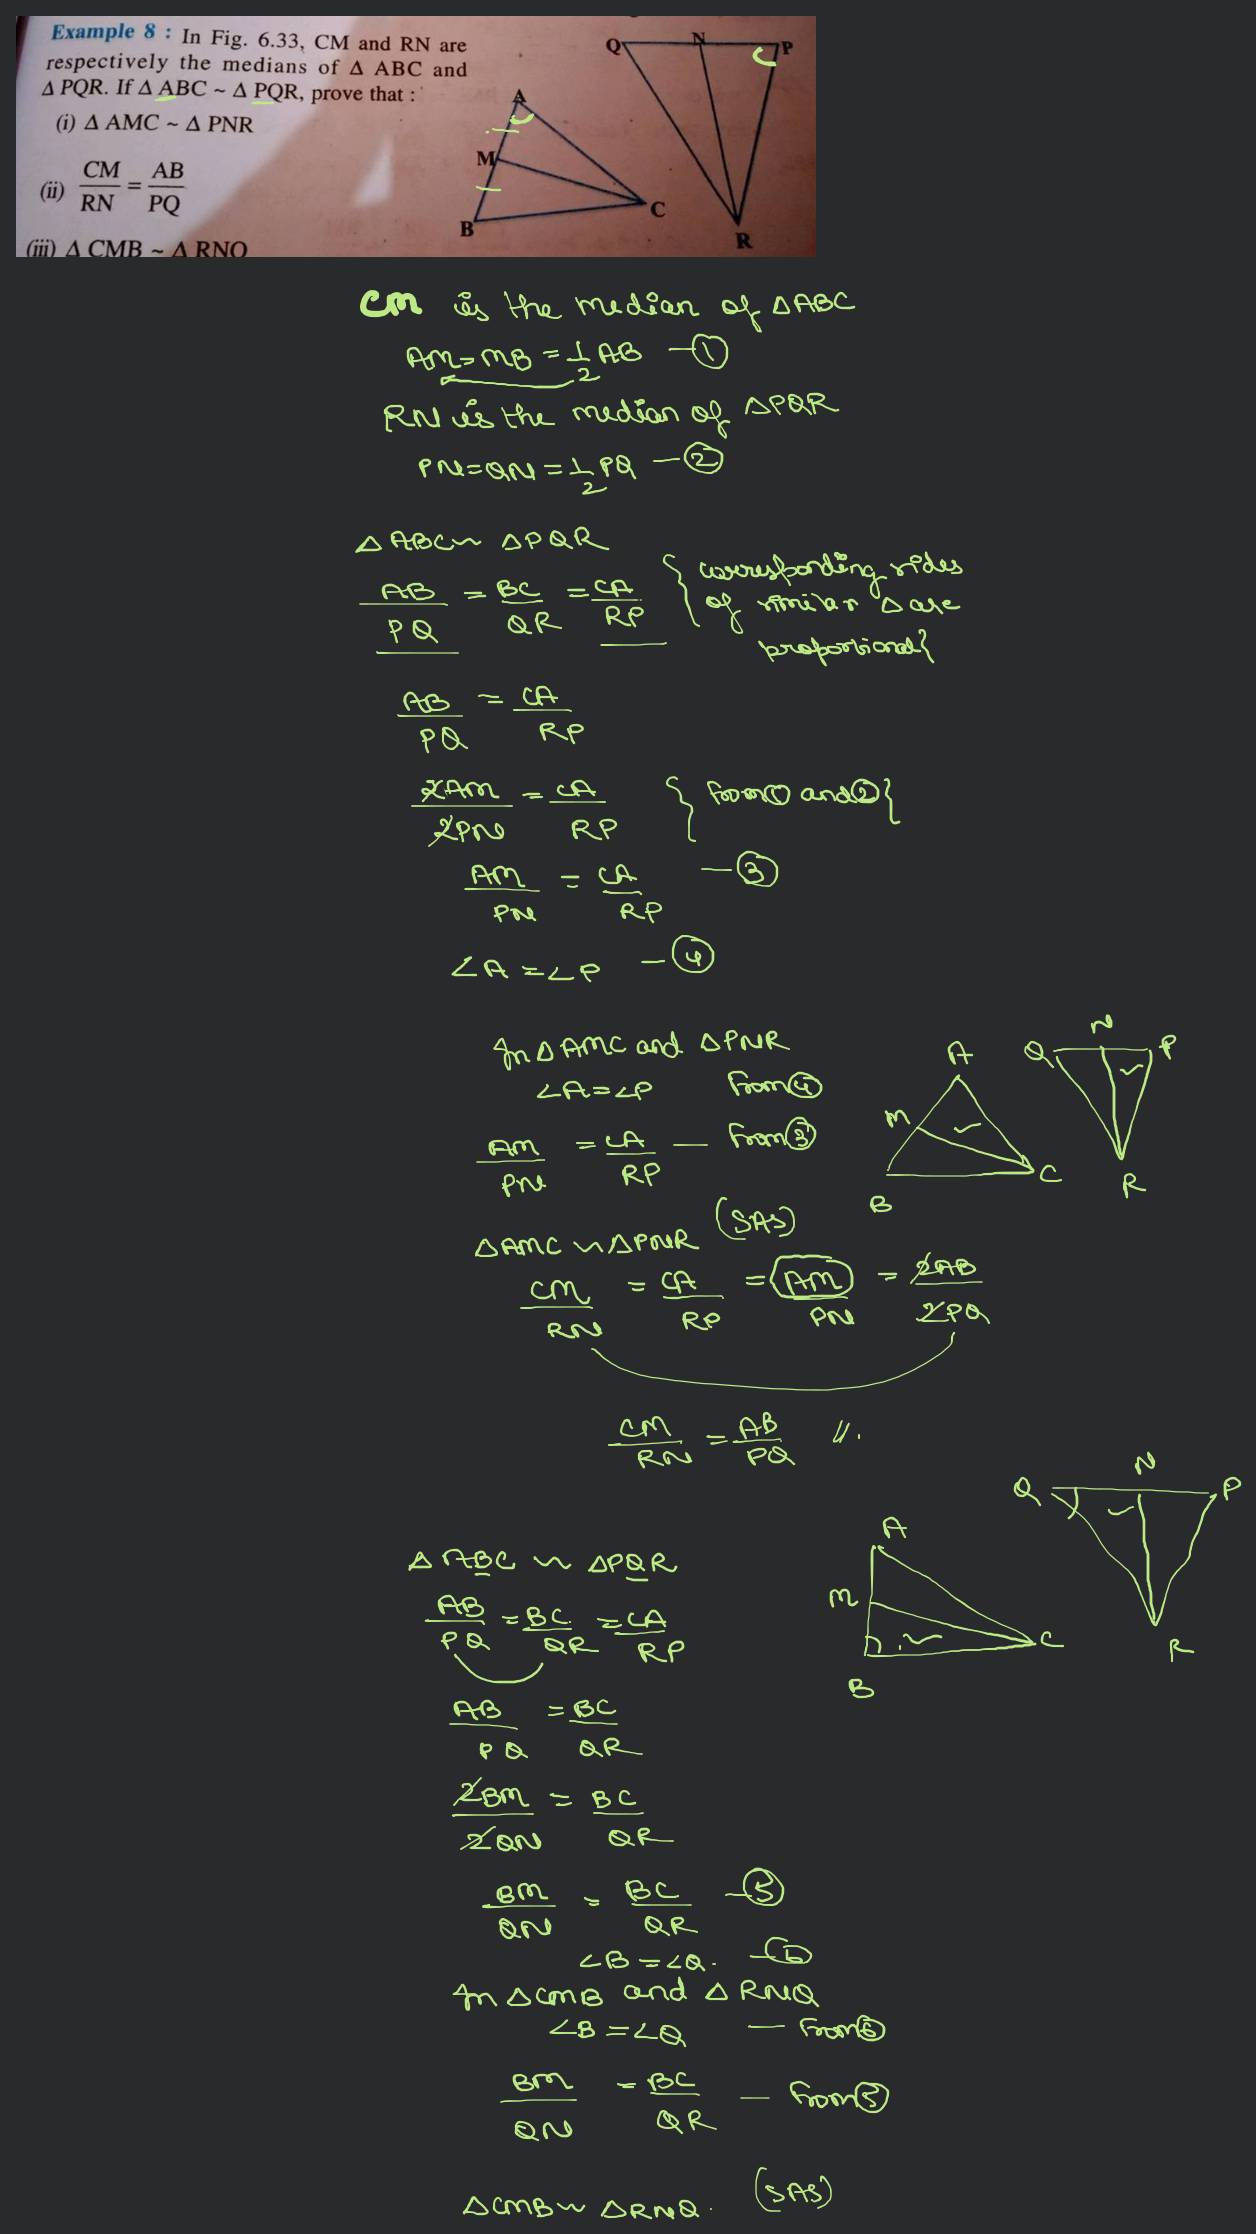 Example 8 : In Fig. 6.33, CM and RN are
respectively the medians of Δ ABC and
Δ PQR. If Δ ABC ~ Δ PQR, prove that :
(i) Δ AMC ~ Δ PNR
(ii) CM/RN = AB/PQ
(iii) Δ CMB ~ Δ RNQ
A
M
B
C
Q
N
P
R
CM is the median of ΔABC
AM=MB=1/2 AB —①
RN is the median of ΔPQR
PN=QN=1/2 PQ —②
ΔABC~ ΔPQR
AB/PQ = BC/QR = CA/RP { corresponding sides
of similar Δ are
proportional}
AB/PQ = CA/RP
2AM/2PN = CA/RP { from ① and ② }
AM/PN = CA/RP —③
∠A=∠P —④
In ΔAMC and ΔPNR
∠A=∠P from ④
AM/PN = CA/RP — from ③
ΔAMC ~ΔPNR (SAS)
A
M
B
C
Q
N
P
R
CM/RN = CA/RP = AM/PN = 2AB/2PQ
CM/RN = AB/PQ //.
ΔABC ~ ΔPQR
AB/PQ = BC/QR = CA/RP
A
M
B
C
Q
N
P
R
AB/PQ = BC/QR
2BM/2QN = BC/QR
BM/QN = BC/QR —⑤
∠B=∠Q. —⑥
In ΔCMB and ΔRNQ
∠B=∠Q — from ⑥
BM/QN = BC/QR — from ⑤
ΔCMB~ ΔRNQ. (SAS)